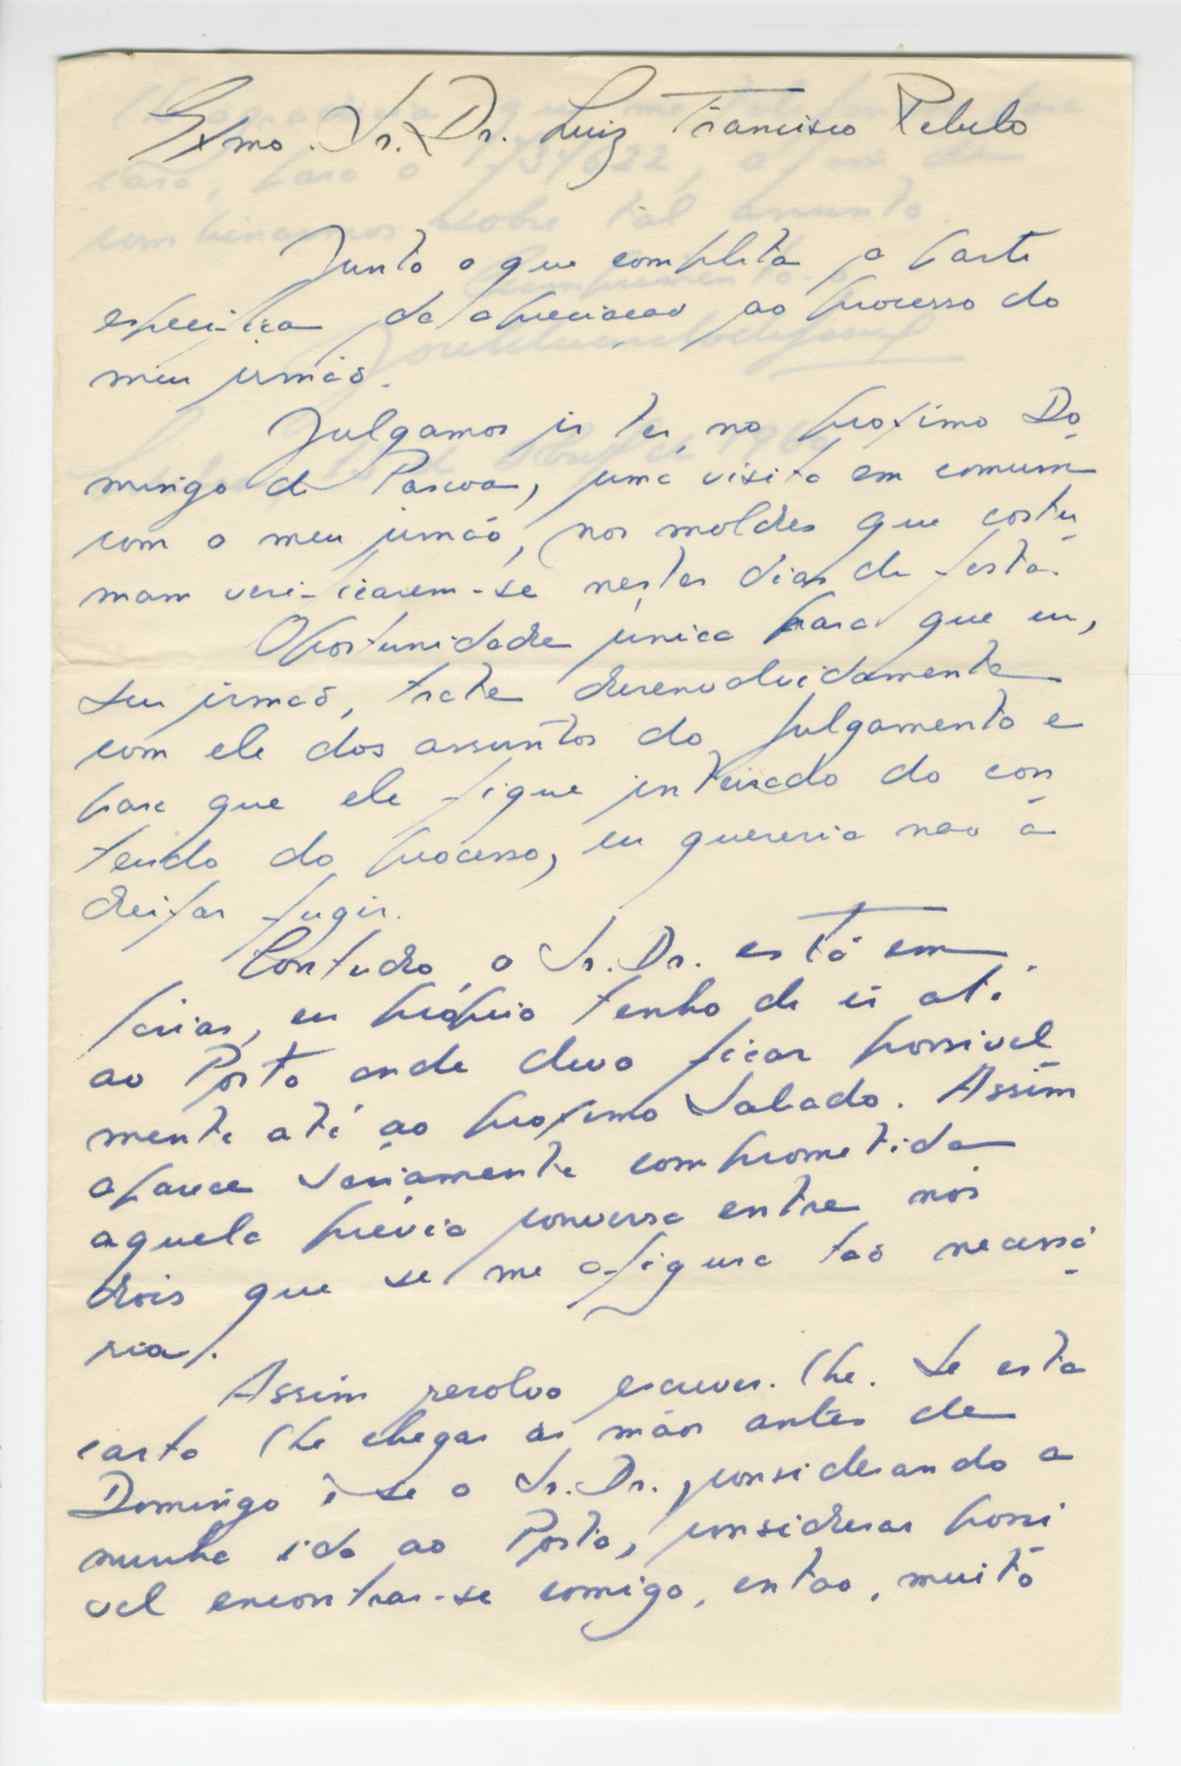 Exmo. Sr. Dr. Luiz Francisco Rebelo
Junto o que completa a parte
especifica da apreciacao ao processo do
meu irmão.
Julgamos ir ter, no proximo Do
mingo de Pascoa, uma visita em comum
com o meu irmão, nos moldes que costu
mam verificarem-se nestes dias de festa.
Oportunidade única para que eu,
seu irmão, trate desenvolvidamente
com ele dos assuntos do julgamento e
para que ele fique inteirado do con
teudo do processo, eu quereria não a
deixar fugir.
Contudo, o Sr. Dr. está em
férias, eu próprio tenho de ir até
ao Porto onde devo ficar possivel
mente até ao proximo Sabado. Assim
aparece sériamente comprometida
aquela prévia conversa entre nós
dois que se me afigura tão necessá
ria.
Assim resolvo escrever-lhe. Se esta
carta lhe chegar ás mãos antes de
Domingo e se o Sr. Dr., considerando a
minha ida ao Porto, considerar possi
vel encontrar-se comigo, entao, muito